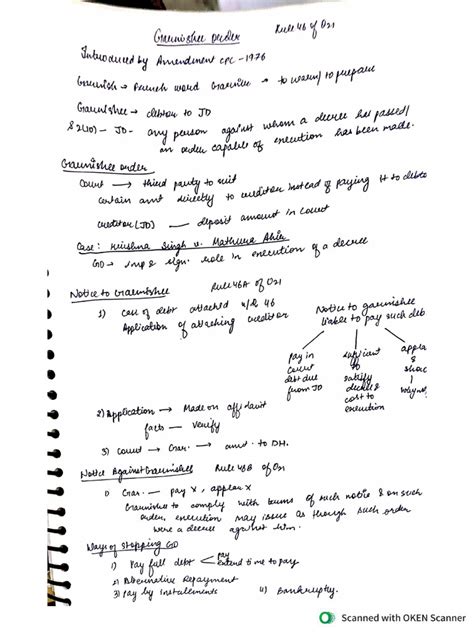 Garnishee order Rule 46 of O21
Introduced by Amendment CPC - 1976
Garnish → French word Garnire → to warn / to prepare
Garnishee → debtor to JD
S 2(10) - JD - any person against whom a decree has passed/
an order capable of execution has been made.
Garnishee order
Court → third party to suit
certain amt directly to creditor instead of paying it to debto
creditor (JD) → deposit amount in court
Case: Krishna Singh v. Mathura Ahir
GO → imp & sign. role in execution of a decree
Notice to Garnishee Rule 46A of O21
1) Case of debt attached u/R 46
Application of attaching creditor
Notice to garnishee
liable to pay such deb
pay in
court
debt due
from JD
sufficient
to
satisfy
decree &
cost to
execution
appea
&
show
2) Application → Made on affidavit
facts — verify
3) Court → Gar. → amt. to DH.
Notice Against Garnishee Rule 46B of O21
1) Gar. — pay X, appear X
Garnishee to comply with terms of such notice & on such
order, execution may issue as through such order
were a decree against him.
Ways of Stopping GO
1) Pay full debt < pay
extend time to pay
2) Alternative Repayment
3) Pay by instalements 4) Bankruptcy.
Scanned with OKEN Scanner